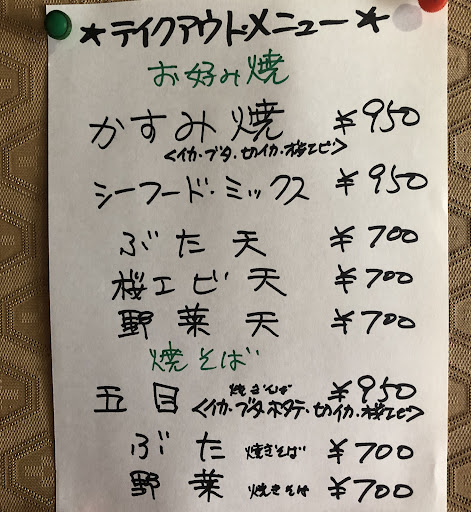 ★テイクアウトメニュー★
お好み焼
かすみ焼 ¥950
<イカ・ブタ・切イカ・桜エビ>
シーフード・ミックス ¥950
ぶた天 ¥700
桜エビ天 ¥700
野菜天 ¥700
焼そば
五目焼きそば ¥950
<イカ・ブタ・ホタテ・切イカ・桜エビ>
ぶた焼きそば ¥700
野菜焼きそば ¥700